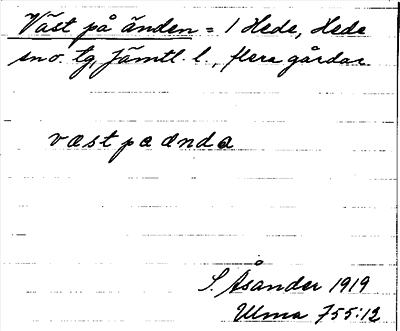 Väst på änden = 1 Hede, Hede
sn o. tg, Jämtl. l., flera gårdar.
væst pa ænda
S. Åsander 1919
Ulma 755:12